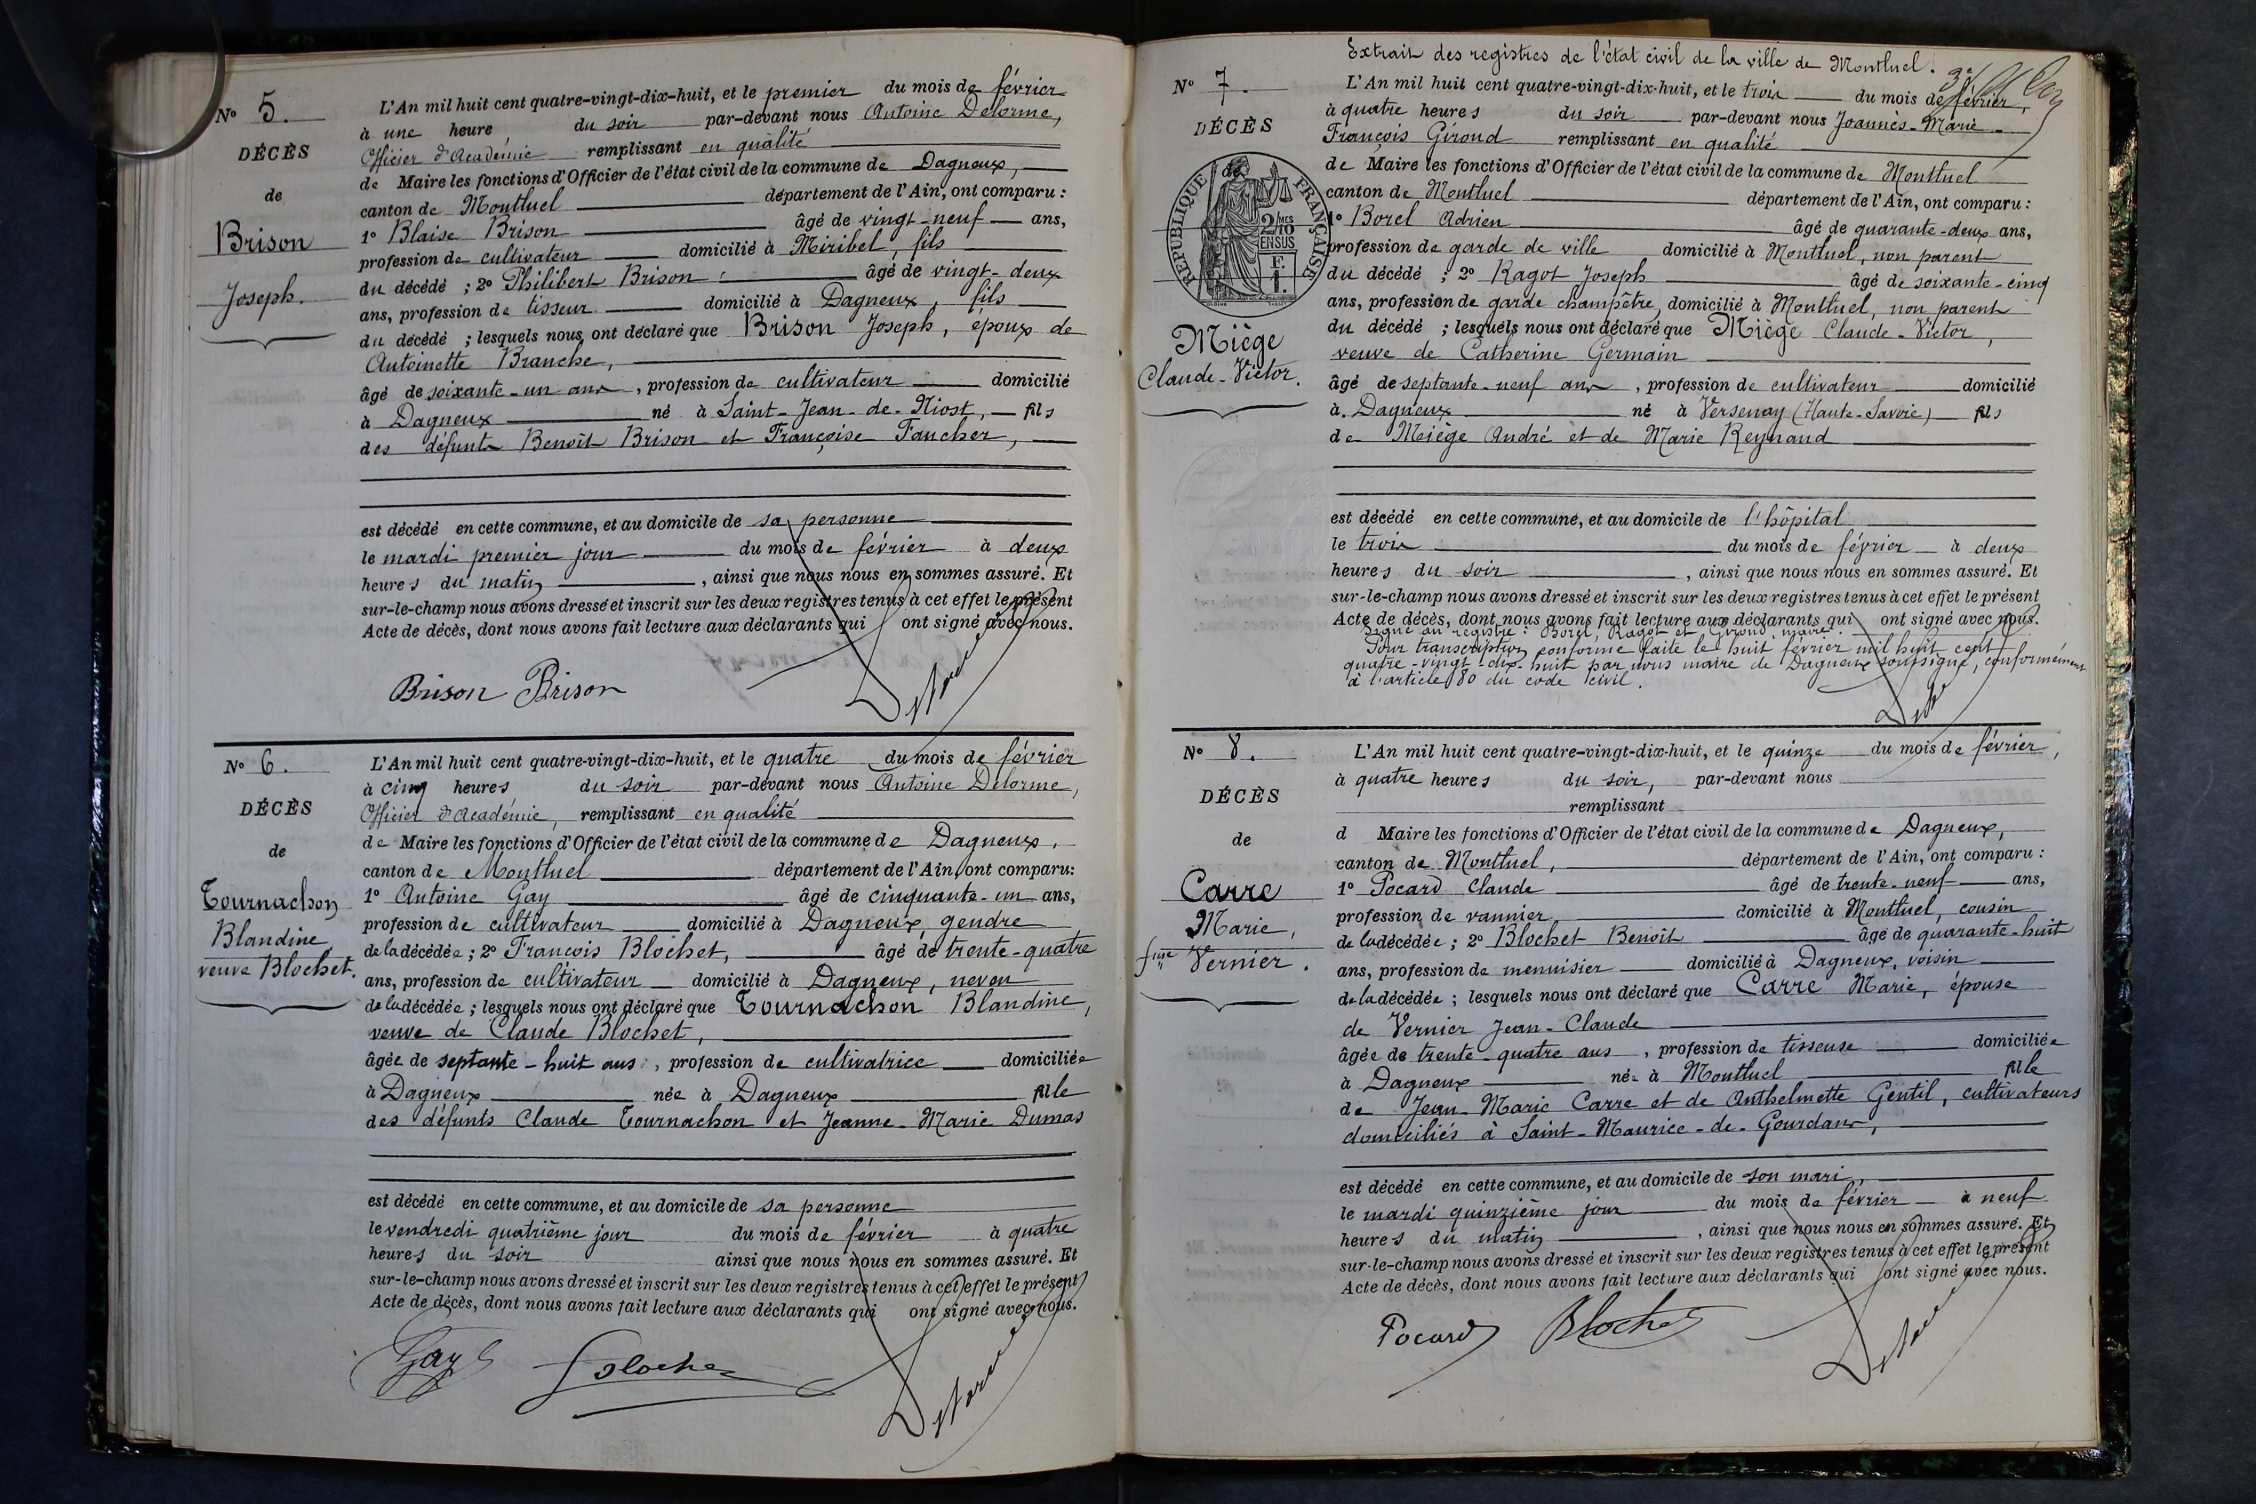 N° 5.
DÉCÈS
de
Brison
Joseph.
L'An mil huit cent quatre-vingt-dix-huit, et le premier du mois de février
à une heure, du soir par-devant nous Antoine Delorme,
Officier d'Académie remplissant en qualité
de Maire les fonctions d'Officier de l'état civil de la commune de Dagneux,
canton de Montluel département de l'Ain, ont comparu :
1° Blaise Brison âgé de vingt-neuf ans,
profession de cultivateur domicilié à Miribel, fils
du décédé ; 2° Philibert Brison âgé de vingt-deux
ans, profession de tisseur domicilié à Dagneux, fils
du décédé ; lesquels nous ont déclaré que Brison Joseph, époux de
Antoinette Branche,
âgé de soixante-un ans, profession de cultivateur domicilié
à Dagneux né à Saint-Jean-de-Niost, fils
des défunts Benoît Brison et Françoise Faucher,
est décédé en cette commune, et au domicile de sa personne
le mardi premier jour du mois de février à deux
heures du matin, ainsi que nous nous en sommes assuré. Et
sur-le-champ nous avons dressé et inscrit sur les deux registres tenus à cet effet le présent
Acte de décès, dont nous avons fait lecture aux déclarants qui ont signé avec nous.
Brison Brison Delorme
N° 6.
DÉCÈS
de
Tournachon
Blandine
veuve Blochet.
L'An mil huit cent quatre-vingt-dix-huit, et le quatre du mois de février
à cinq heures du soir par-devant nous Antoine Delorme,
Officier d'Académie, remplissant en qualité
de Maire les fonctions d'Officier de l'état civil de la commune de Dagneux,
canton de Montluel département de l'Ain, ont comparu:
1° Antoine Gay âgé de cinquante-un ans,
profession de cultivateur domicilié à Dagneux, gendre
de la décédée ; 2° François Blochet, âgé de trente-quatre
ans, profession de cultivateur domicilié à Dagneux, neveu
de la décédée ; lesquels nous ont déclaré que Tournachon Blandine,
veuve de Claude Blochet,
âgée de septante-huit ans, profession de cultivatrice domiciliée
à Dagneux née à Dagneux fille
des défunts Claude Tournachon et Jeanne-Marie Dumas
est décédé en cette commune, et au domicile de sa personne
le vendredi quatrième jour du mois de février à quatre
heures du soir ainsi que nous nous en sommes assuré. Et
sur-le-champ nous avons dressé et inscrit sur les deux registres tenus à cet effet le présent
Acte de décès, dont nous avons fait lecture aux déclarants qui ont signé avec nous.
Gay Blochet Delorme
Extrait des registres de l'état civil de la ville de Montluel.
N° 7.
DÉCÈS
de
RÉPUBLIQUE FRANÇAISE
2/10 MES
EN SUS
F.
1.
Miège
Claude-Victor.
L'An mil huit cent quatre-vingt-dix-huit, et le trois du mois de février,
à quatre heures du soir par-devant nous Joannès-Marie-
François Giroud remplissant en qualité
de Maire les fonctions d'Officier de l'état civil de la commune de Montluel
canton de Montluel département de l'Ain, ont comparu :
1° Borel Adrien âgé de quarante-deux ans,
profession de garde de ville domicilié à Montluel, non parent
du décédé ; 2° Ragot Joseph âgé de soixante-cinq
ans, profession de garde champêtre, domicilié à Montluel, non parent
du décédé ; lesquels nous ont déclaré que Miège Claude-Victor,
veuve de Catherine Germain
âgé de septante-neuf ans, profession de cultivateur domicilié
à Dagneux né à Versenay (Haute-Savoie) fils
de Miège André et de Marie Reynaud
est décédé en cette commune, et au domicile de l'hôpital
le trois du mois de février à deux
heures du soir, ainsi que nous nous en sommes assuré. Et
sur-le-champ nous avons dressé et inscrit sur les deux registres tenus à cet effet le présent
Acte de décès, dont nous avons fait lecture aux déclarants qui ont signé avec nous.
Signé au registre : Borel, Ragot et Giroud, maire.
Pour transcription conforme faite le huit février mil huit cent
quatre-vingt-dix-huit par nous maire de Dagneux soussigné, conformément
à l'article 80 du code civil.
N° 8.
DÉCÈS
de
Carre
Marie,
fme Vernier.
L'An mil huit cent quatre-vingt-dix-huit, et le quinze du mois de février,
à quatre heures du soir, par-devant nous
remplissant
d Maire les fonctions d'Officier de l'état civil de la commune de Dagneux,
canton de Montluel, département de l'Ain, ont comparu :
1° Pocard Claude âgé de trente-neuf ans,
profession de vannier domicilié à Montluel, cousin
de la décédée ; 2° Blochet Benoît âgé de quarante-huit
ans, profession de menuisier domicilié à Dagneux, voisin
de la décédée ; lesquels nous ont déclaré que Carre Marie, épouse
de Vernier Jean-Claude
âgée de trente-quatre ans, profession de tisseuse domiciliée
à Dagneux née à Montluel fille
de Jean-Marie Carre et de Anthelmette Gentil, cultivateurs
domiciliés à Saint-Maurice-de-Gourdans,
est décédé en cette commune, et au domicile de son mari,
le mardi quinzième jour du mois de février à neuf
heures du matin, ainsi que nous nous en sommes assuré. Et
sur-le-champ nous avons dressé et inscrit sur les deux registres tenus à cet effet le présent
Acte de décès, dont nous avons fait lecture aux déclarants qui ont signé avec nous.
Pocard Blochet Delorme